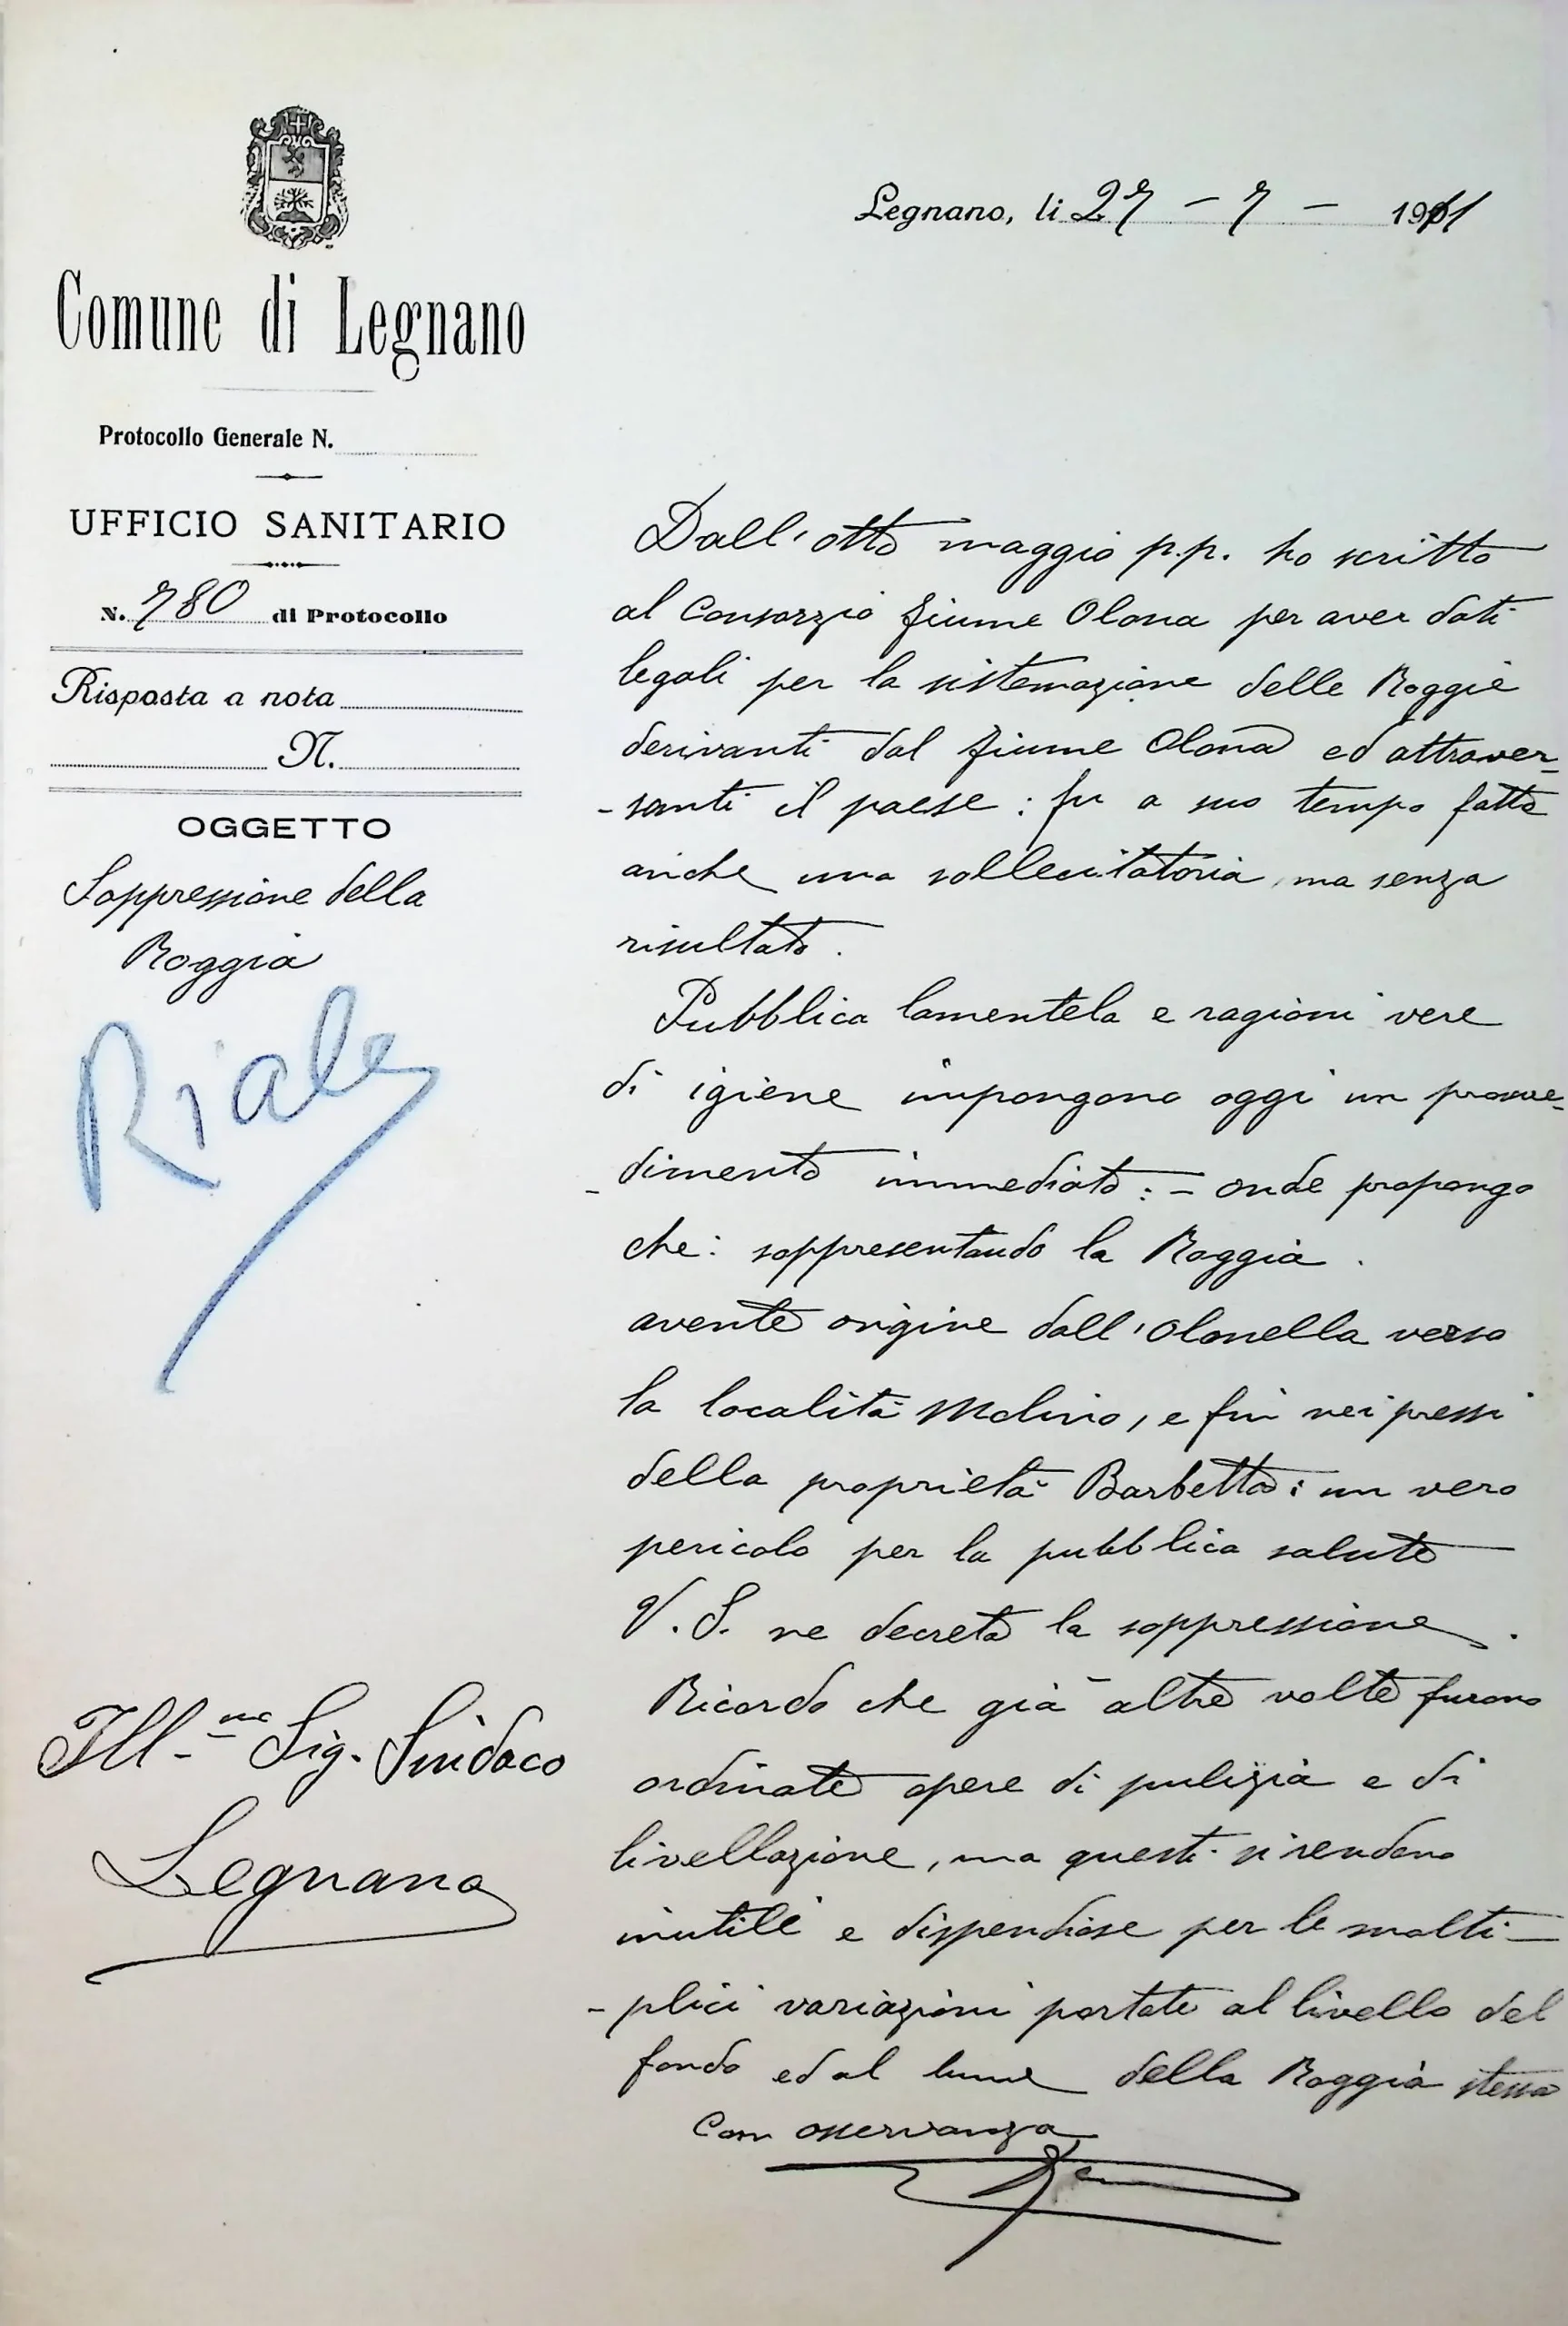 Comune di Legnano
Protocollo Generale N.
UFFICIO SANITARIO
N. 780 di Protocollo
Risposta a nota
N.
OGGETTO
Soppressione della
Roggia
Riale
Ill.mo Sig. Sindaco
Legnano
Legnano, li 27 - 7 - 1911
Dall'otto maggio p.p. ho scritto
al Consorzio fiume Olona per aver dati
legali per la sistemazione delle Roggie
derivanti dal fiume Olona ed attraver-
-santi il paese : fu a suo tempo fatta
anche una sollecitatoria, ma senza
risultato.
Pubblica lamentela e ragioni vere
di igiene impongono oggi un provve-
-dimento immediato : - onde propongo
che : soppresentando la Roggia
avente origine dall'Olonella verso
la località Molino, e fin nei pressi
della proprietà Barbetta : un vero
pericolo per la pubblica salute
V. S. ne decreta la soppressione.
Ricordo che già altre volte furono
ordinate opere di pulizia e di
livellazione, ma questi si rendono
inutili e dispendiose per le molti-
-plici variazioni portate al livello del
fondo ed al lume della Roggia stessa
Con osservanza